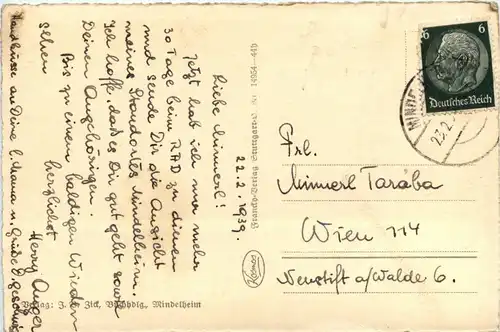 22.2.1939.
Liebe Minnerl!
Jetzt hab ich nur mehr
30 Tage beim RAD zu dienen
und sende Dir die Ansicht
meines Standortes Mindelheim.
Ich hoffe, dass es Dir gut geht sowie
Deinen Angehörigen.
Bis zu einem baldigen Wieder
sehen
herzlichst
Herry Unger
Handküsse an Deine l. Mama u. Grüsse
Verlag: J. Zick, Buchhdlg., Mindelheim
6 6
Deutsches Reich
MINDE
23.2.
Frl.
Minnerl Taraba
Wien 114
Neustift a/Walde 6.